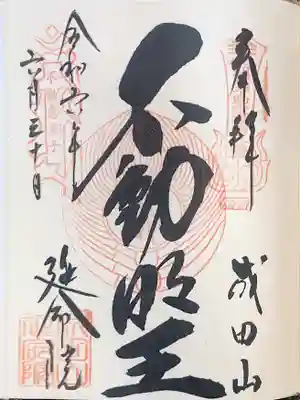 奉拝
成田山
不動明王
令和六年
六月三十日
延命院